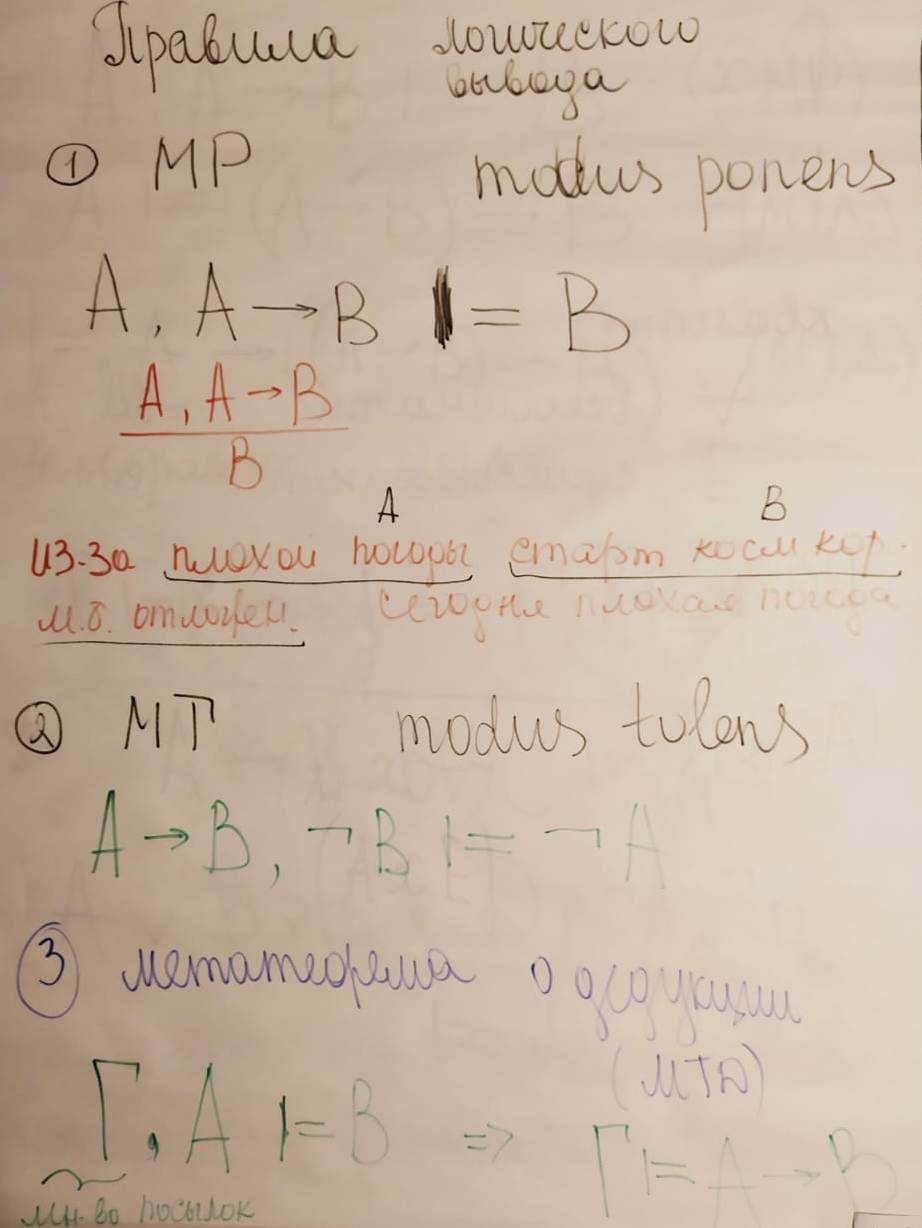 Правила логического
вывода
① МР modus ponens
A, A → B |= B
A, A → B
B
A B
из-за плохой погоды старт косм кор.
м.б. отложен. Сегодня плохая погода
② МТ modus tulens
A → B, ¬B |= ¬A
③ метатеорема о дедукции
(МТД)
Г, A |= B => Г |= A → B
мн-во посылок